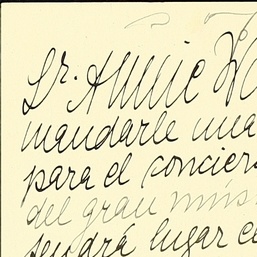 Sr. Annie
mandarle una
para el concier
del gran mús
tendrá lugar e